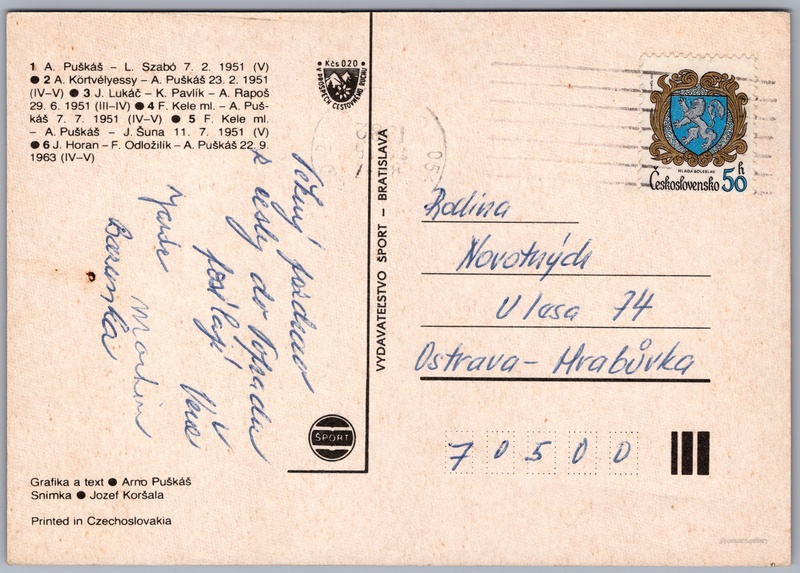 1 A. Puškáš – L. Szabó 7. 2. 1951 (V)
● 2 A. Körtvélyessy – A. Puškáš 23. 2. 1951
(IV–V) ● 3 J. Lukáč – K. Pavlík – A. Rapoš
29. 6. 1951 (III–IV) ● 4 F. Kele ml. – A. Puš-
káš 7. 7. 1951 (IV–V) ● 5 F. Kele ml.
– A. Puškáš – J. Šuna 11. 7. 1951 (V)
● 6 J. Horan – F. Odložilík – A. Puškáš 22. 9.
1963 (IV–V)
Kčs 0,20
V PROSPECH CESTOVNÉHO RUCHU
Pěkný pozdrav
z cesty do Popradu
posílají Věra
Martin
Barunka
ŠPORT
Grafika a text ● Arno Puškáš
Snímka ● Jozef Koršala
Printed in Czechoslovakia
VYDAVATEĽSTVO ŠPORT – BRATISLAVA
MLADÁ BOLESLAV
Československo 50 h
Rodina
Novotných
U lesa 74
Ostrava – Hrabůvka
70500